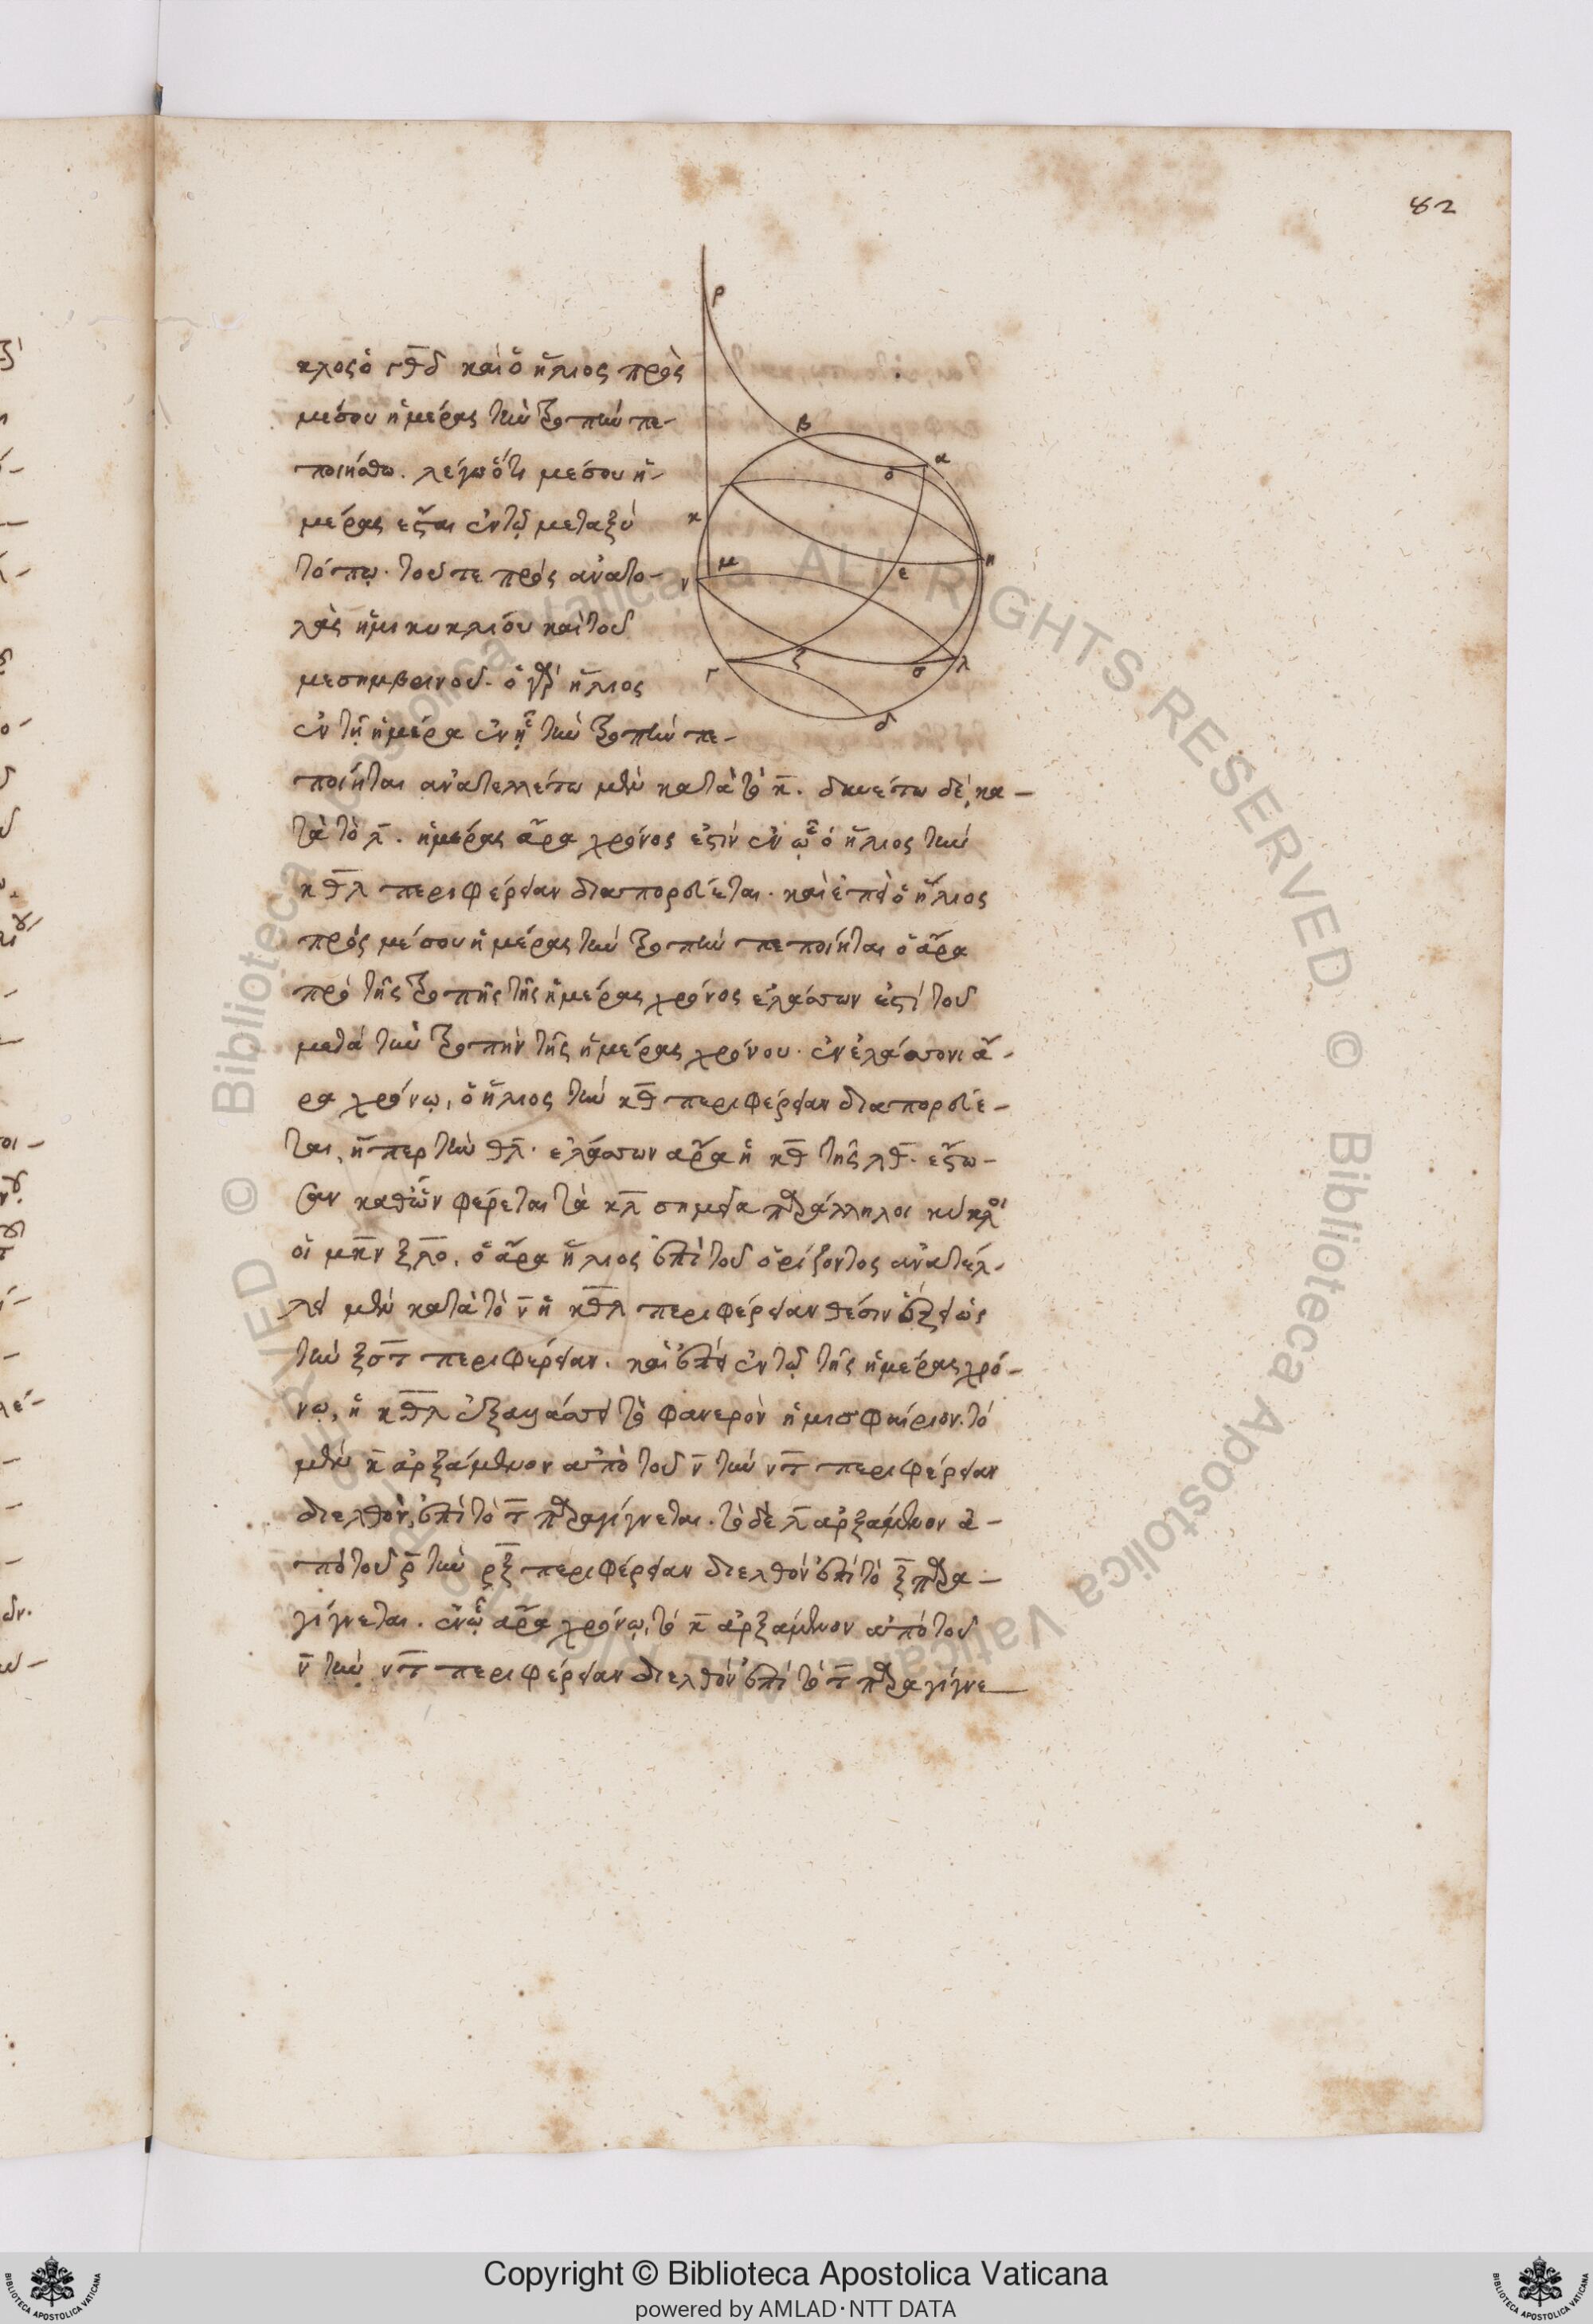 82
κλος ὁ γθδ καὶ ὁ ἥλιος πρὸς
μέσου ἡμέρας τὴν τροπὴν πε-
ποιήσθω. λέγω ὅτι μέσου ἡ-
μέρας ἔσται ἐν τῷ μεταξὺ
τόπῳ. τοῦ τε πρὸς ἀνατο-
λὰς ἡμικυκλίου καὶ τοῦ
μεσημβρινοῦ. ὁ γὰρ ἥλιος
ἐν τῇ ἡμέρα ἐν ᾗ τὴν τροπὴν πε-
ποίηται ἀνατελλέτω μὲν κατὰ τὸ κ̄. δυνέτω δὲ, κα-
τὰ τὸ λ̄. ἡμέρας ἄρα χρόνος ἐστὶν ἐν ᾧ ὁ ἥλιος τὴν
κθλ περιφέρειαν διαπορεύεται. καὶ ἐπεὶ ὁ ἥλιος
πρὸς μέσου ἡμέρας τὴν τροπὴν πεποίηται ὁ ἄρα
πρὸ τῆς τροπῆς τῆς ἡμέρας χρόνος ἐλάσσων ἐστὶ τοῦ
μετὰ τὴν τροπὴν τῆς ἡμέρας χρόνου. ἐν ἐλάσσονι ἄ-
ρα χρόνῳ, ὁ ἥλιος τὴν κθ περιφέρειαν διαπορεύε-
ται, ἤπερ τὴν θλ. ἐλάσσων ἄρα ἡ κθ τῆς λθ. ἔστω-
σαν καθ' ὧν φέρεται τὰ κλ σημεῖα παράλληλοι κύκλοι
οἱ μκν ξλο. ὁ ἄρα ἥλιος ἐπὶ τοῦ ὁρίζοντος ἀνατέλ-
λει μὲν κατὰ τὸ ν̄ ἡ κθλ περιφέρειαν θέσιν ἕξει ὡς
τὴν ξστ περιφέρειαν. καὶ ἐπεὶ ἐν τῷ τῆς ἡμέρας χρό-
νῳ, ἡ κθλ ἐξαλλάσσει τὸ φανερὸν ἡμισφαίριον. τὸ
μὲν κ̄ ἀρξάμενον ἀπὸ τοῦ ν̄ τὴν ντ περιφέρειαν
διελθὸν, ἐπὶ τὸ τ̄ παραγίγνεται. τὸ δὲ λ̄ ἀρξάμενον ἀ-
πὸ τοῦ ρ̄ τὴν ρξ περιφέρειαν διελθὸν ἐπὶ τὸ ξ̄ παρα-
γίγνεται. ἐν ᾧ ἄρα χρόνῳ, τὸ κ̄ ἀρξάμενον ἀπὸ τοῦ
ν̄ τὴν ντ περιφέρειαν διελθὸν ἐπὶ τὸ τ̄ παραγίγνε
ρ
β
α
ο
κ
η
μ
ε
ν
ζ
γ
σ
λ
δ
Copyright © Biblioteca Apostolica Vaticana
powered by AMLAD·NTT DATA